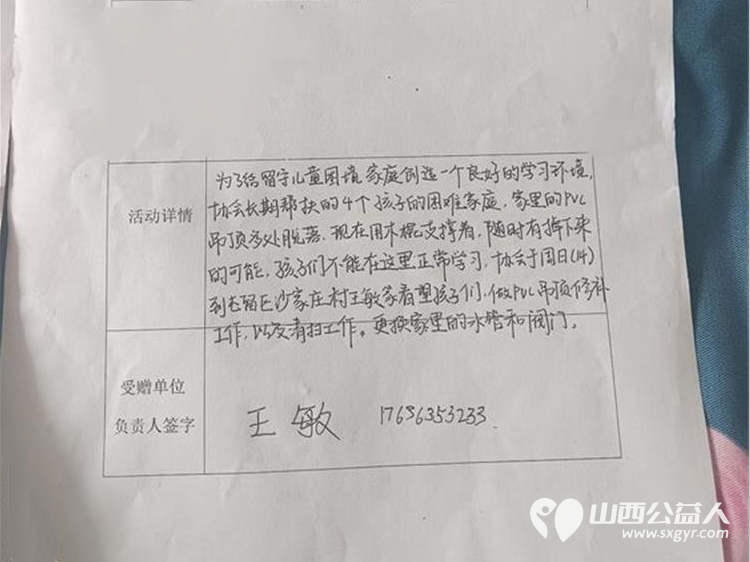 活动详情
为了给留守儿童困境家庭创造一个良好的学习环境,
协会长期帮扶的4个孩子的困难家庭,家里的PVC
吊顶多处脱落,现在用木棍支撑着,随时有掉下来
的可能,孩子们不能在这里正常学习,协会于周日(14)
到屯留区沙家庄村王敏家看望孩子们,做PVC吊顶修补
工作,以及清扫工作。更换家里的水管和阀门。
受赠单位
负责人签字
王敏 17636353233
山西公益人
www.sxgyr.com